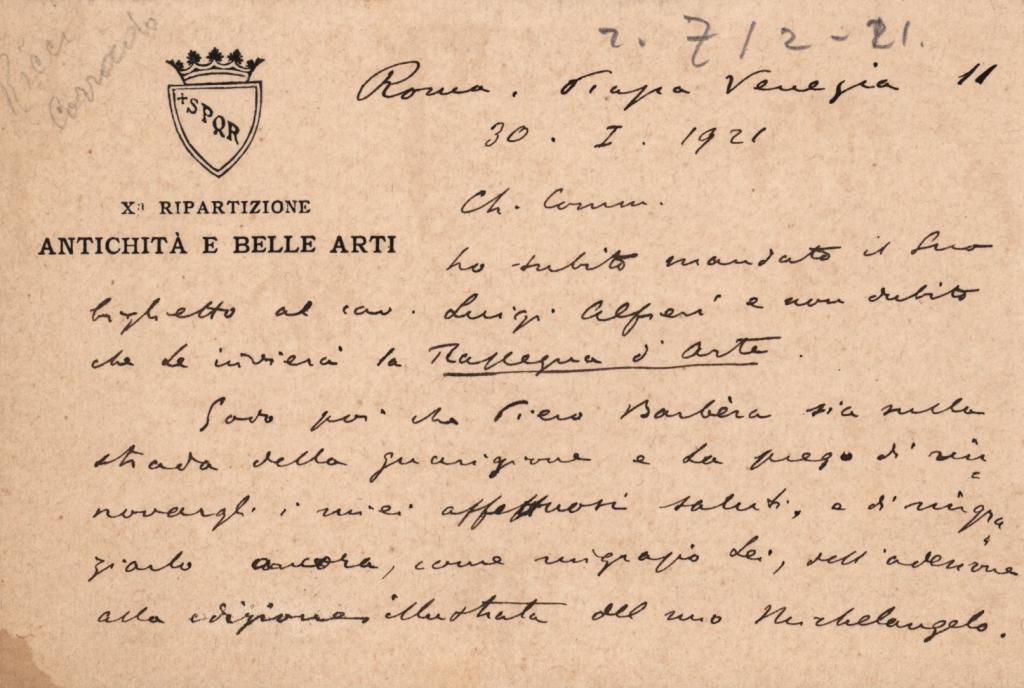 Ricci
Corrado
r. 7/2-21.
SPQR
Xa RIPARTIZIONE
ANTICHITÀ E BELLE ARTI
Roma. Piazza Venezia 11
30. I. 1921
Ch. Comm.
ho subito mandato il Suo
biglietto al cav. Luigi Alfieri e non dubito
che Le invierà la Rassegna d'Arte.
Godo poi che Piero Barbèra sia sulla
strada della guarigione e La prego di rin
novargli i miei affettuosi saluti, e di ringra
ziarlo ancora, come ringrazio Lei, dell'adesione
alla edizione illustrata del mio Michelangelo.